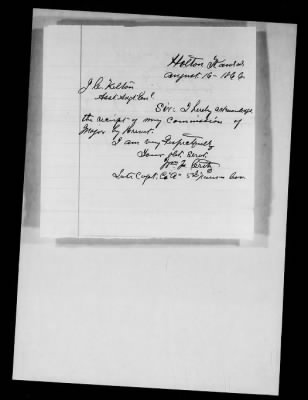 Holton Kansas
August 16 - 1866
J. C. Kelton
Asst Adjt Genl
Sir: I hereby acknowledge
the receipt of my Commission of
Major by Brevet.
I am very Respectfully
Your obt. Servt.
Wm
Late Capt. Co "A" 5th Kansas Cav